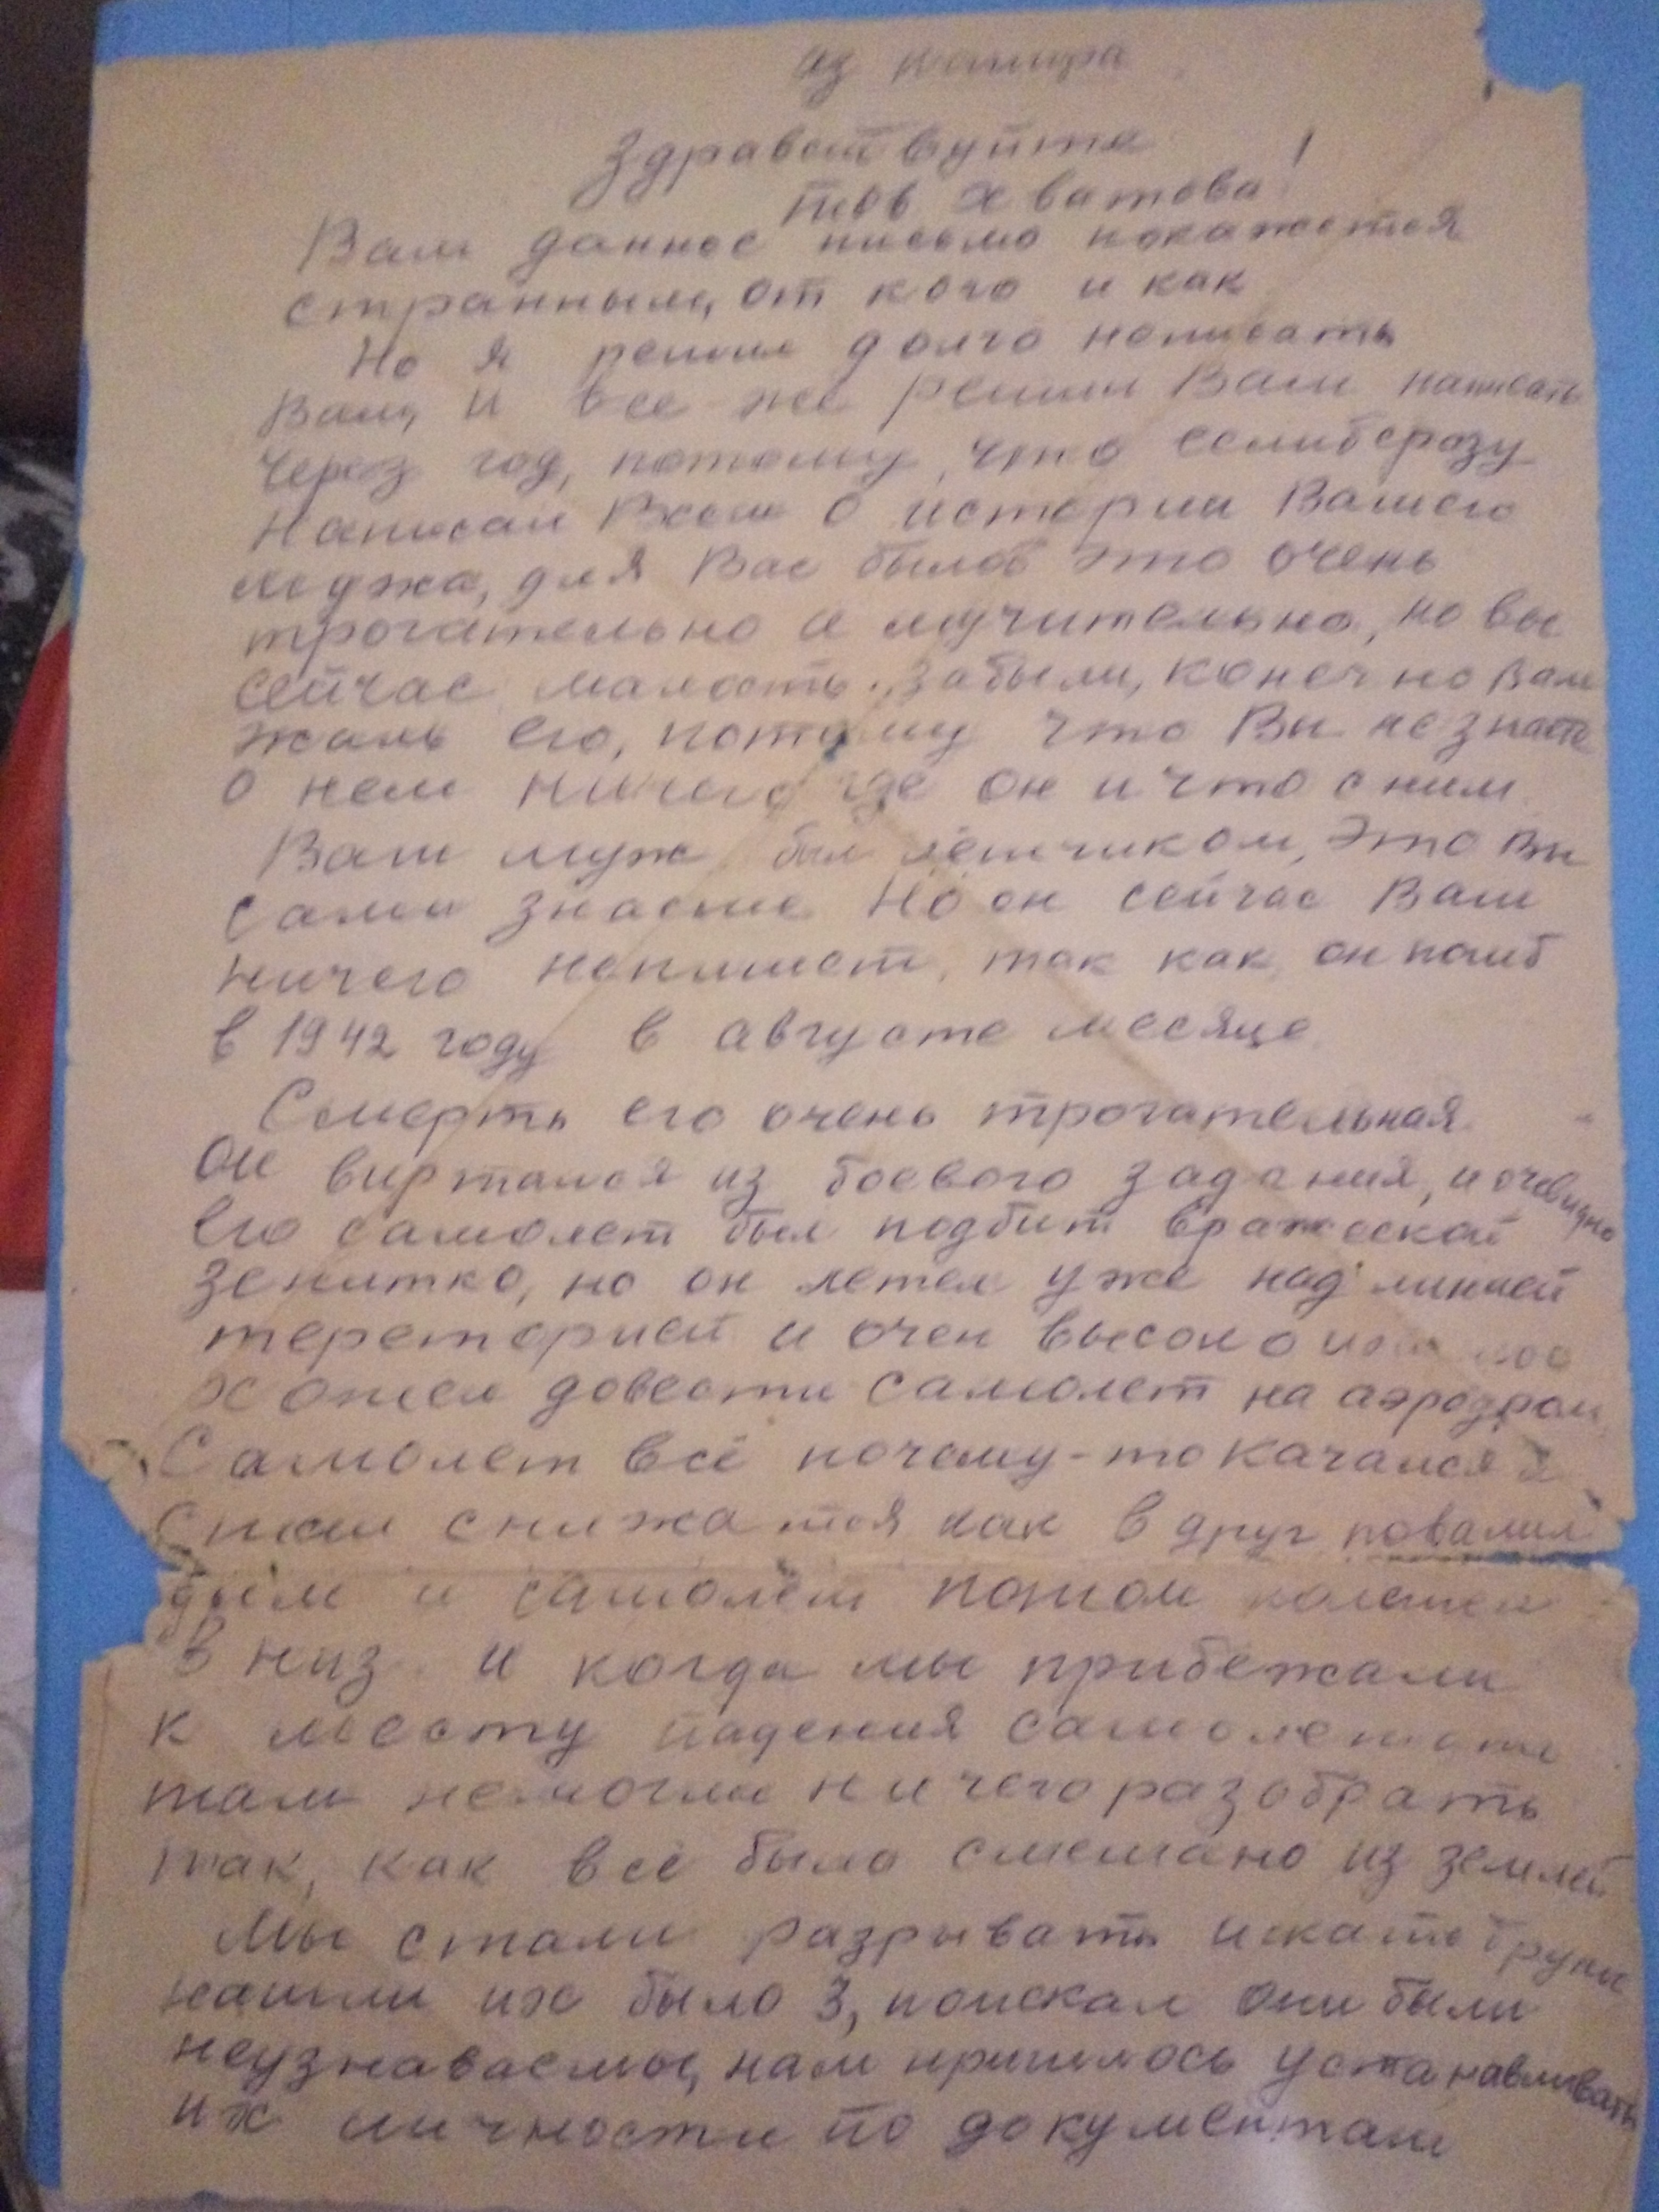 из
Здравствуйте
тов Хватова!
Вам данное письмо покажется
странным, от кого и как
Но я решил долго неписать
Вам, и все же решил Вам написать
через год, потому, что еслибсразу
написал Вам о истории Вашего
мужа, для Вас былоб это очень
трогательно и мучительно, но вы
сейчас малость забыли, конечно Вам
жаль его, потому что Вы не знаете
о нем ничего где он и что с ним
Ваш муж был лётчиком, Это Вы
сами знаете Но он сейчас Вам
ничего непишет, так как он погиб
в 1942 году в августе месяце.
Смерть его очень трогательная.
Он виртался из боевого задания, и очевидно
его самолет был подбит вражеской
зенитко, но он летел уже над линией
тереторией и очен высоко
хотел довести самолет на аэродром,
Самолет всё почему-то качался и
стал снижатся как в друг повалил
дым и самолёт потом полетел
в низ и когда мы прибежали
к месту падения самолета
там немогли ничего разобрать
так, как всё было смешано из землей
Мы стали разрывать искать трупы
нашли их было 3, поискал они были
неузнаваемы, нам пришлось устанавливать
их личности по документам